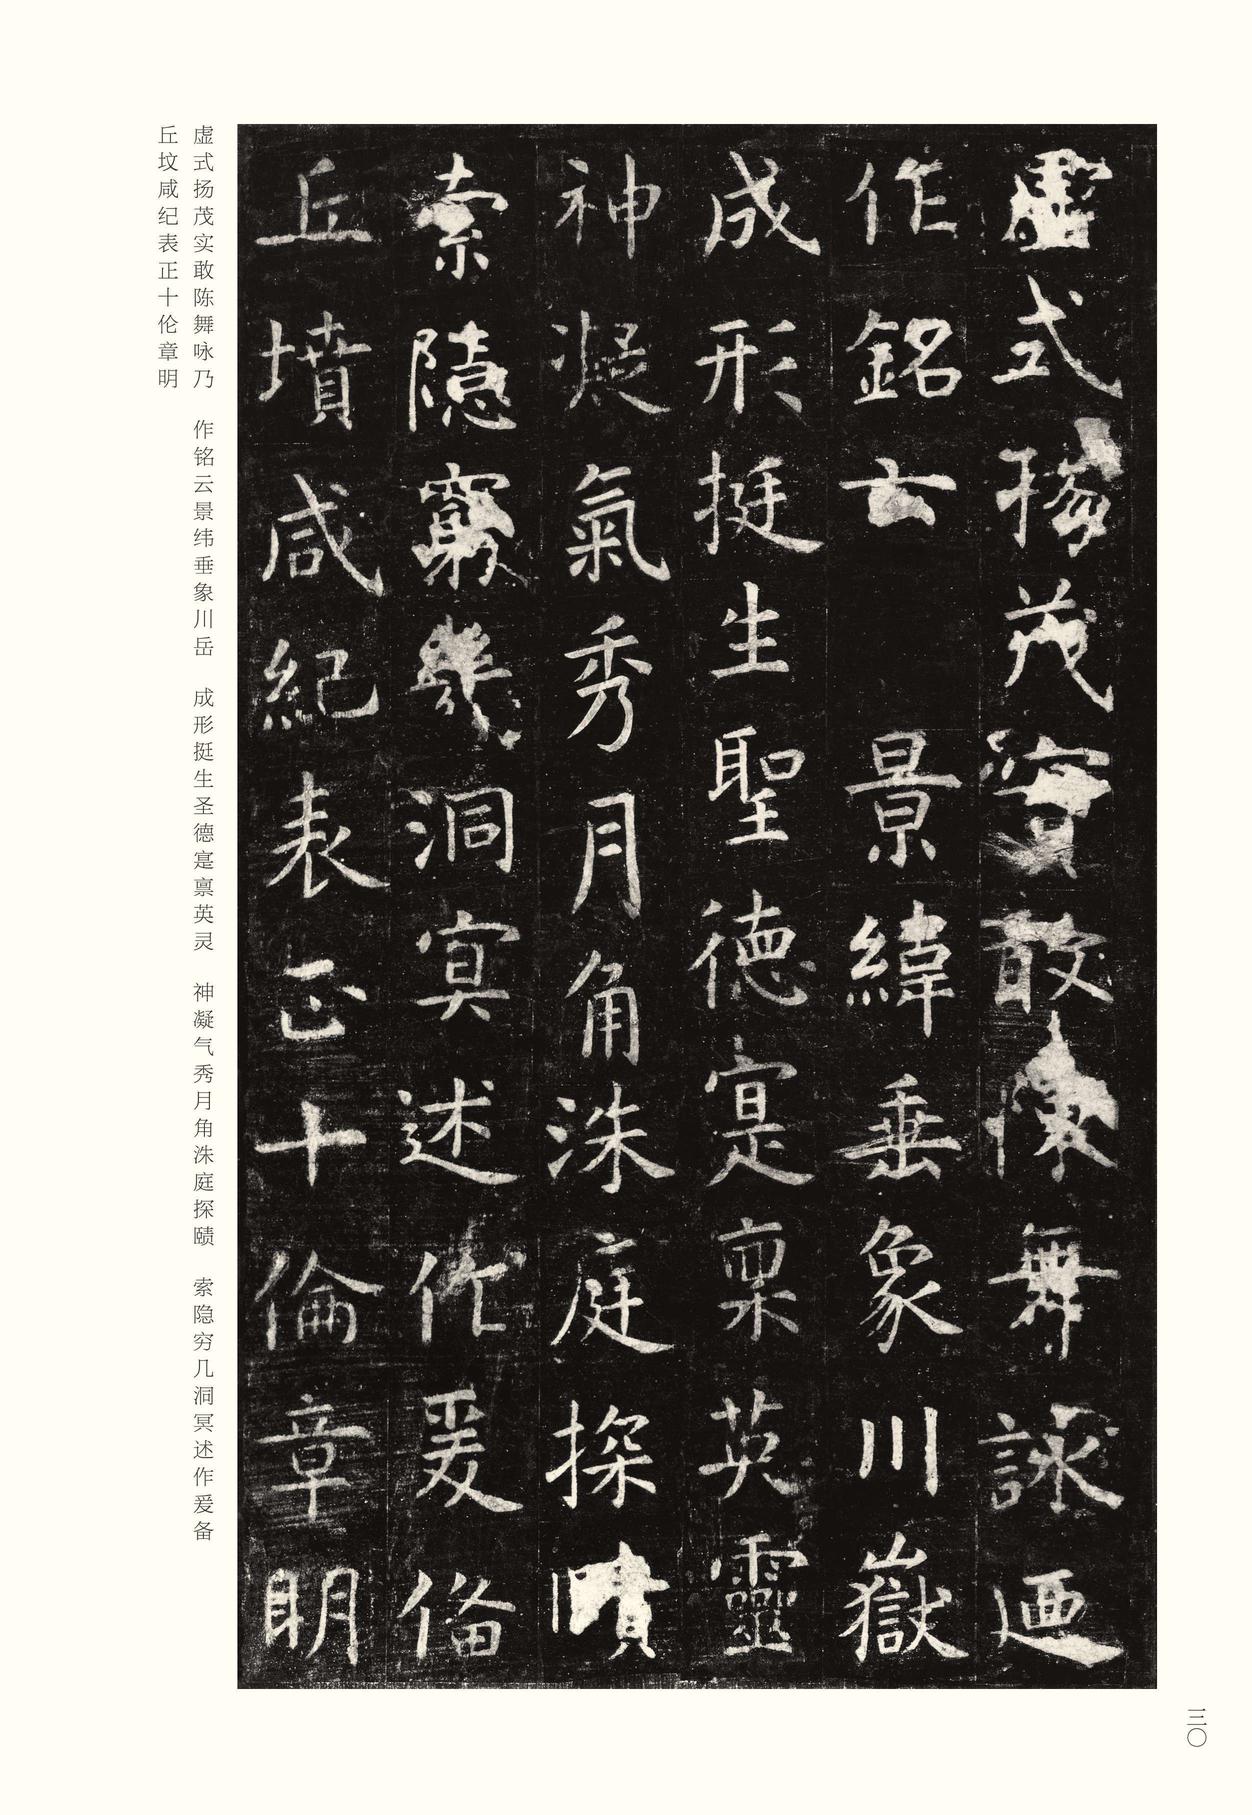 虛式揚茂實敢陳舞詠迺
作銘云景緯垂象川嶽
成形挺生聖德寔稟英靈
神凝氣秀月角洙庭探賾
索隱窮幾洞冥述作爰俻
丘墳咸紀表正十倫章明
虚式扬茂实敢陈舞咏乃 作铭云景纬垂象川岳 成形挺生圣德寔禀英灵 神凝气秀月角洙庭探赜 索隐穷几洞冥述作爰备
丘坟咸纪表正十伦章明
三〇